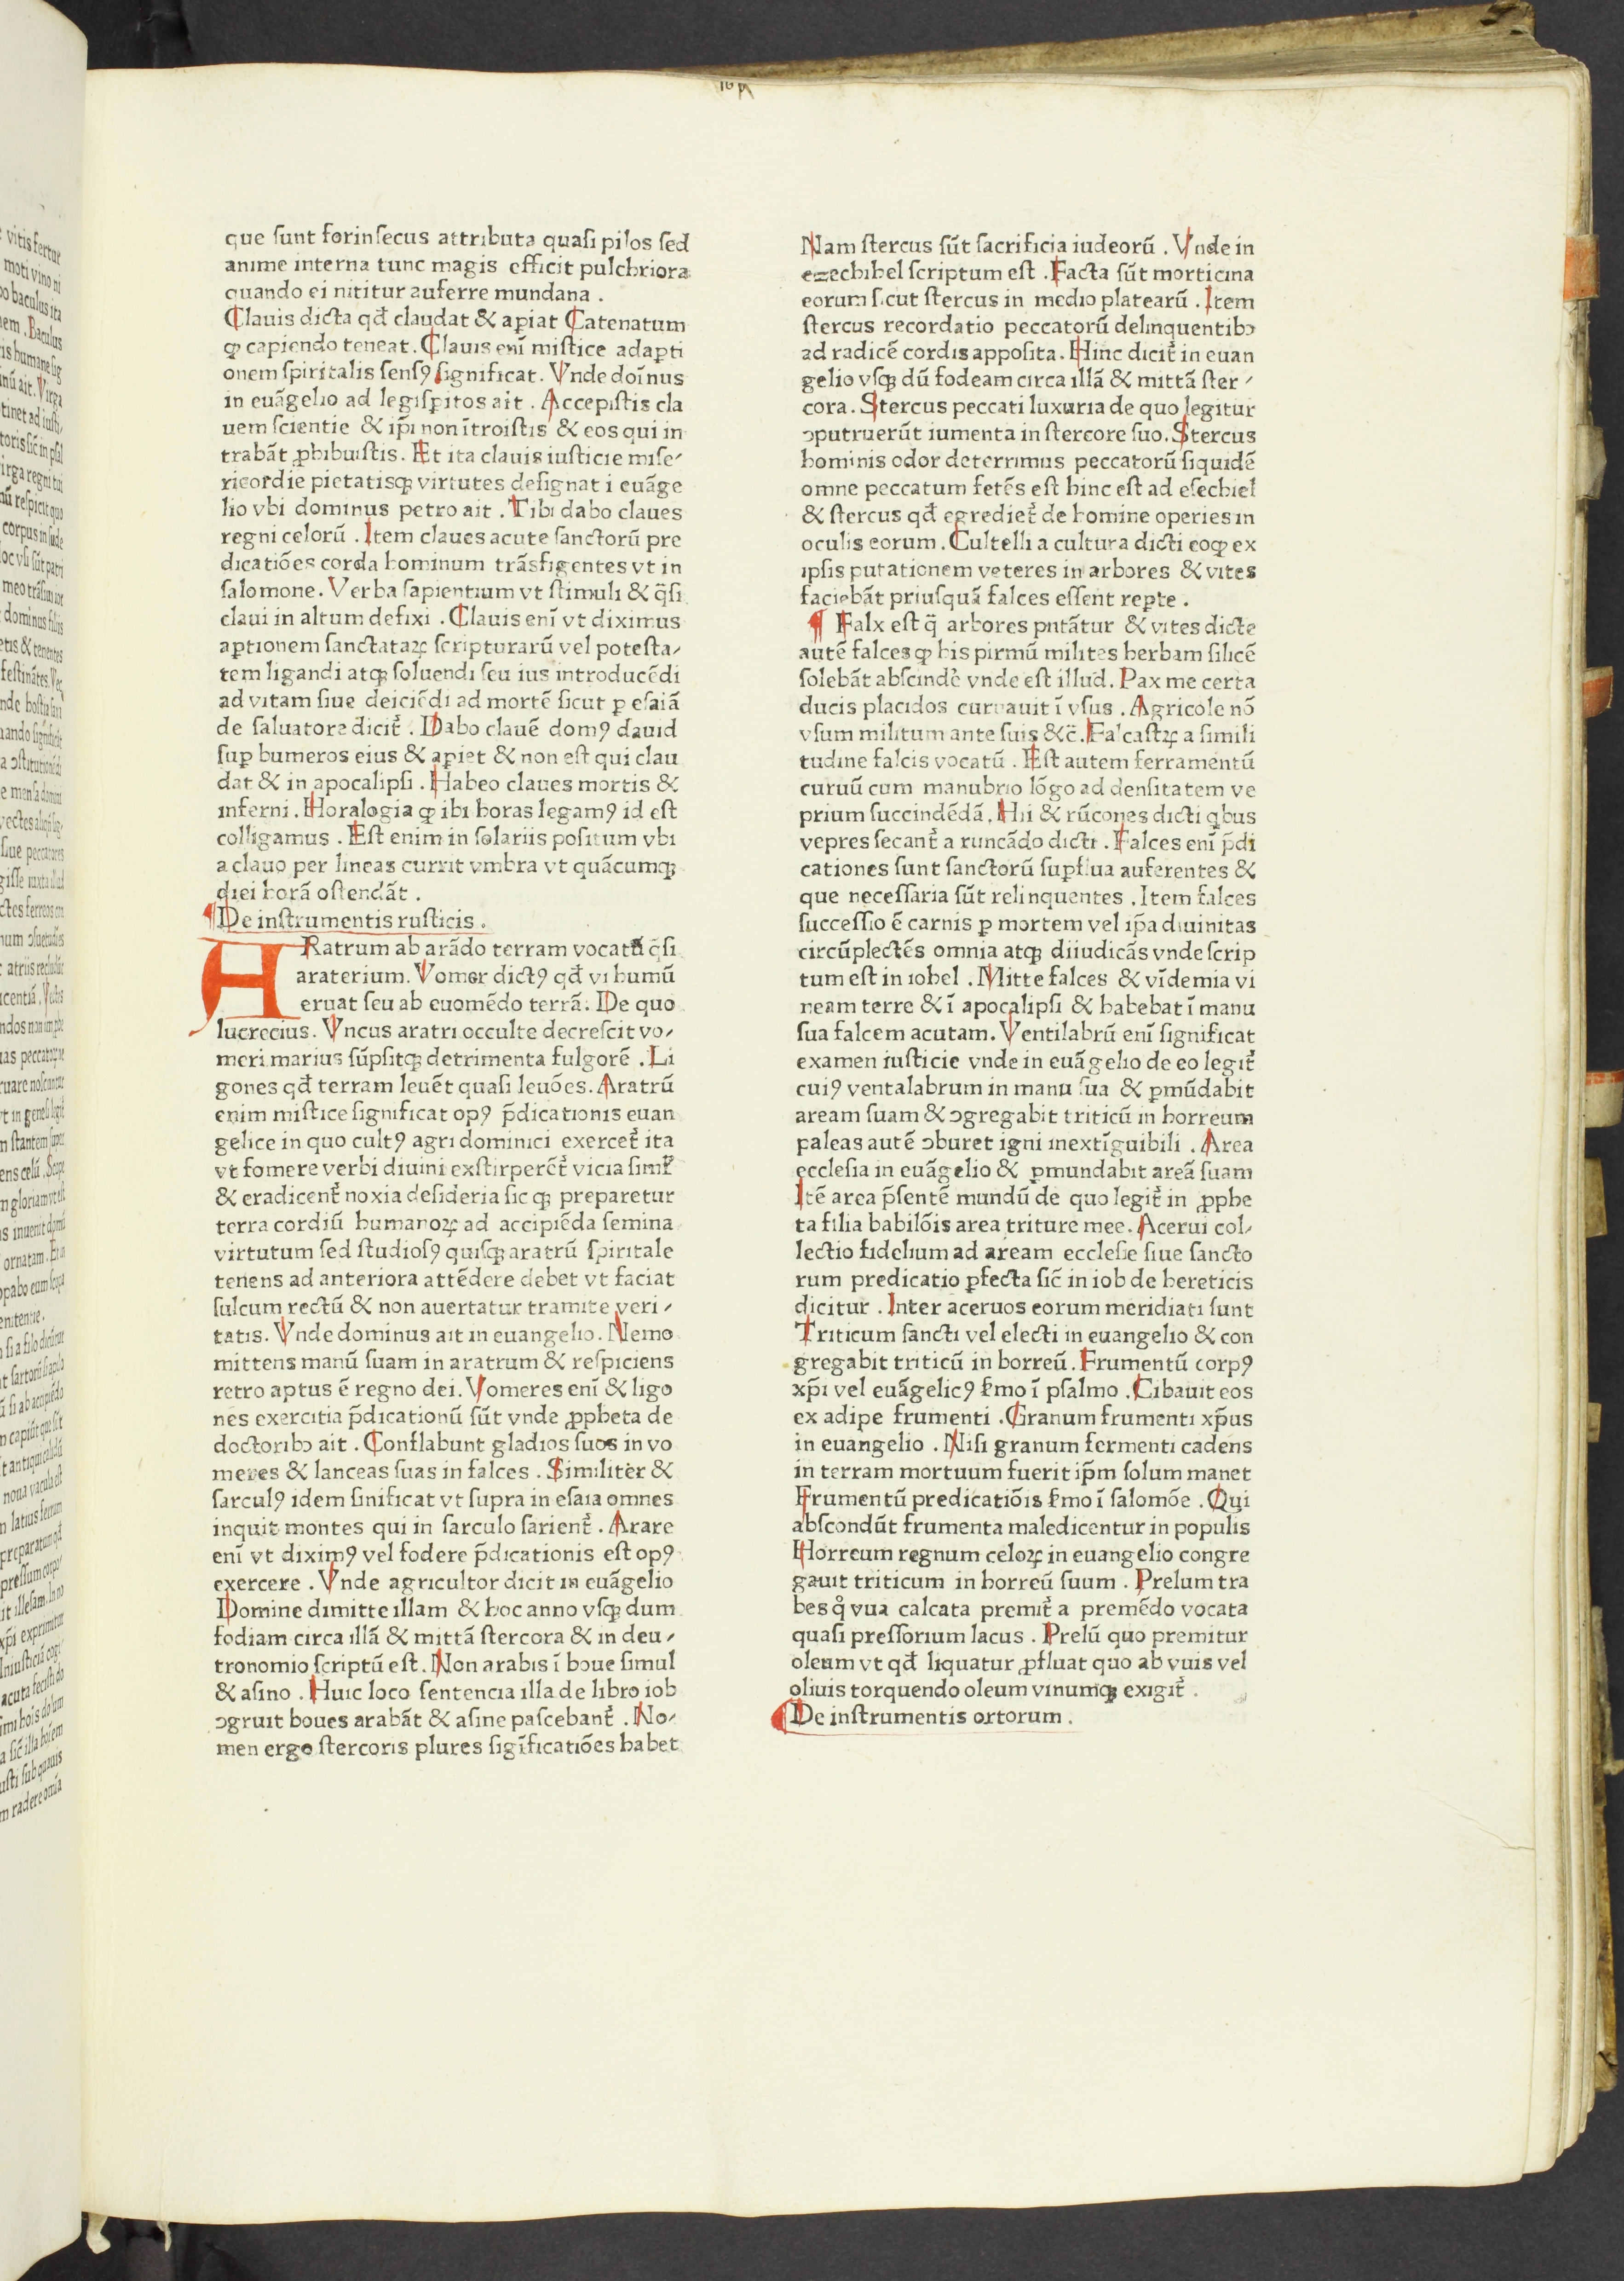 que ſunt forinſecus attributa quaſi pilos ſed
anime interna tunc magis efficit pulchriora
quando ei nititur auferre mundana .
Clauis dicta qđ claudat & aꝑiat Catenatum
ꝙ capiendo teneat. Clauis enī miſtice adaꝑti
onem ſpiritalis ſenſꝰ ſignificat. Vnde doīnus
in euāgelio ad legiſꝑitos ait . Accepiſtis cla
uem ſcientie & ip̄i non ītroiſtis & eos qui in
trabāt ꝓhibuiſtis. Et ita clauis iuſticie miſe⸗
ricordie pietatisqꝫ virtutes deſignat i euāge
lio vbi dominus petro ait . Tibi dabo claues
regni celorū . Item claues acute ſanctorū pre
dicatiōes corda hominum trāſfigentes vt in
ſalomone. Verba ſapientium vt ſtimuli & q̄ſi
claui in altum defixi . Clauis enī vt diximus
aꝑtionem ſanctataꝝ ſcripturarū vel poteſta⸗
tem ligandi atqꝫ ſoluendi ſeu ius introducēdi
ad vitam ſiue deiciēdi ad mortē ſicut ꝑ eſaiā
de ſaluatore dicit᷑ . Dabo clauē domꝰ dauid
ſuꝑ humeros eius & aꝑiet & non eſt qui clau
dat & in apocalipſi . Habeo claues mortis &
inferni . Horalogia ꝙ ibi horas legamꝰ id eſt
colligamus . Eſt enim in ſolariis poſitum vbi
a clauo per lineas currit vmbra vt quācumqꝫ
diei horā oſtendāt .
¶De inſtrumentis ruſticis .
ARatrum ab arādo terram vocatū q̄ſi
araterium. Vomer dictꝰ qđ vi humū
eruat ſeu ab euomēdo terrā. De quo
lucrecius. Vncus aratri occulte decreſcit vo⸗
meri marius ſūpſitqꝫ detrimenta fulgorē . Li
gones qđ terram leuēt quaſi leuōes. Aratrū
enim miſtice ſignificat opꝰ p̄dicationis euan
gelice in quo cultꝰ agri dominici exercet᷑ ita
vt fomere verbi diuini exſtirperēt᷑ vicia ſimł
& eradicent᷑ noxia deſideria ſic qꝫ preparetur
terra cordiū humanoꝝ ad accipiēda ſemina
virtutum ſed ſtudioſꝰ quiſqꝫ aratrū ſpiritale
tenens ad anteriora attēdere debet vt faciat
ſulcum rectū & non auertatur tramite veri⸗
tatis. Vnde dominus ait in euangelio. Nemo
mittens manū ſuam in aratrum & reſpiciens
retro aptus ē regno dei. Vomeres enī & ligo
nes exercitia p̄dicationū ſūt vnde ꝓpheta de
doctoribꝫ ait . Conflabunt gladios ſuos in vo
meres & lanceas ſuas in falces . Similiter &
ſarculꝰ idem ſinificat vt ſupra in eſaia omnes
inquit montes qui in ſarculo ſarient᷑ . Arare
enī vt diximꝰ vel fodere p̄dicationis eſt opꝰ
exercere . Vnde agricultor dicit in euāgelio
Domine dimitte illam & hoc anno vſqꝫ dum
fodiam circa illā & mittā ſtercora & in deu⸗
tronomio ſcriptū eſt. Non arabis ī boue ſimul
& aſino . Huic loco ſentencia illa de libro iob
ꝯgruit boues arabāt & aſine paſcebant᷑ . No⸗
men ergo ſtercoris plures ſigīficatiōes habet
Nam ſtercus ſūt ſacrificia iudeorū . Vnde in
ezechihel ſcriptum eſt . Facta ſūt morticina
eorum ſicut ſtercus in medio platearū . Item
ſtercus recordatio peccatorū delinquentibꝫ
ad radicē cordis appoſita. Hinc dicit᷑ in euan
gelio vſqꝫ dū fodeam circa illā & mittā ſter⸗
cora. Stercus peccati luxuria de quo legitur
ꝯputruerūt iumenta in ſtercore ſuo. Stercus
hominis odor deterrimus peccatorū ſiquidē
omne peccatum fetēs eſt hinc eſt ad eſechiel
& ſtercus qđ egrediet᷑ de homine operies in
oculis eorum. Cultelli a cultura dicti eoꝙ ex
ipſis putationem veteres in arbores & vites
faciebāt priuſquā falces eſſent reꝑte .
¶ Falx eſt q̄ arbores pntātur & vites dicte
autē falces ꝙ his pirmū milites herbam ſilicē
ſolebāt abſcinde᷑ vnde eſt illud. Pax me certa
ducis placidos curuauit ī vſus . Agricole nō
vſum militum ante ſuis &c̄. Falcaſtꝝ a ſimili
tudine falcis vocatū . Eſt autem ferramentū
curuū cum manubrio lōgo ad denſitatem ve
prium ſuccindēdā. Hii & rūcones dicti qͥbus
vepres ſecant᷑ a runcādo dicti . Falces enī p̄di
cationes ſunt ſanctorū ſuꝑflua auferentes &
que neceſſaria ſūt relinquentes . Item falces
ſucceſſio ē carnis ꝑ mortem vel ip̄a diuinitas
circūplectēs omnia atqꝫ diiudicās vnde ſcrip
tum eſt in iohel . Mitte falces & vīdemia vi
neam terre & ī apocalipſi & habebat ī manu
ſua falcem acutam. Ventilabrū enī ſignificat
examen iuſticie vnde in euāgelio de eo legit᷑
cuiꝰ ventalabrum in manu ſua & ꝑmūdabit
aream ſuam & ꝯgregabit triticū in horreum
paleas autē ꝯburet igni inextīguibili . Area
eccleſia in euāgelio & ꝑmundabit areā ſuam
Itē area p̄ſentē mundū de quo legit᷑ in ꝓphe
ta filia babilōis area triture mee. Acerui col⸗
lectio fidelium ad aream eccleſie ſiue ſancto
rum predicatio ꝑfecta ſic̄ in iob de hereticis
dicitur . Inter aceruos eorum meridiati ſunt
Triticum ſancti vel electi in euangelio & con
gregabit triticū in horreū. Frumentū corpꝰ
xp̄i vel euāgelicꝰ ẜmo ī pſalmo . Cibauit eos
ex adipe frumenti . Granum frumenti xp̄us
in euangelio . Niſi granum fermenti cadens
in terram mortuum fuerit ip̄m ſolum manet
Frumentū predicatiōis ẜmo ī ſalomōe . Qui
abſcondūt frumenta maledicentur in populis
Horreum regnum celoꝝ in euangelio congre
gauit triticum in horreū ſuum . Prelum tra
bes qͦ vua calcata premit᷑ a premēdo vocata
quaſi preſſorium lacus . Prelū quo premitur
oleum vt qđ liquatur ꝓfluat quo ab vuis vel
oliuis torquendo oleum vinumqꝫ exigit᷑ .
¶De inſtrumentis ortorum .